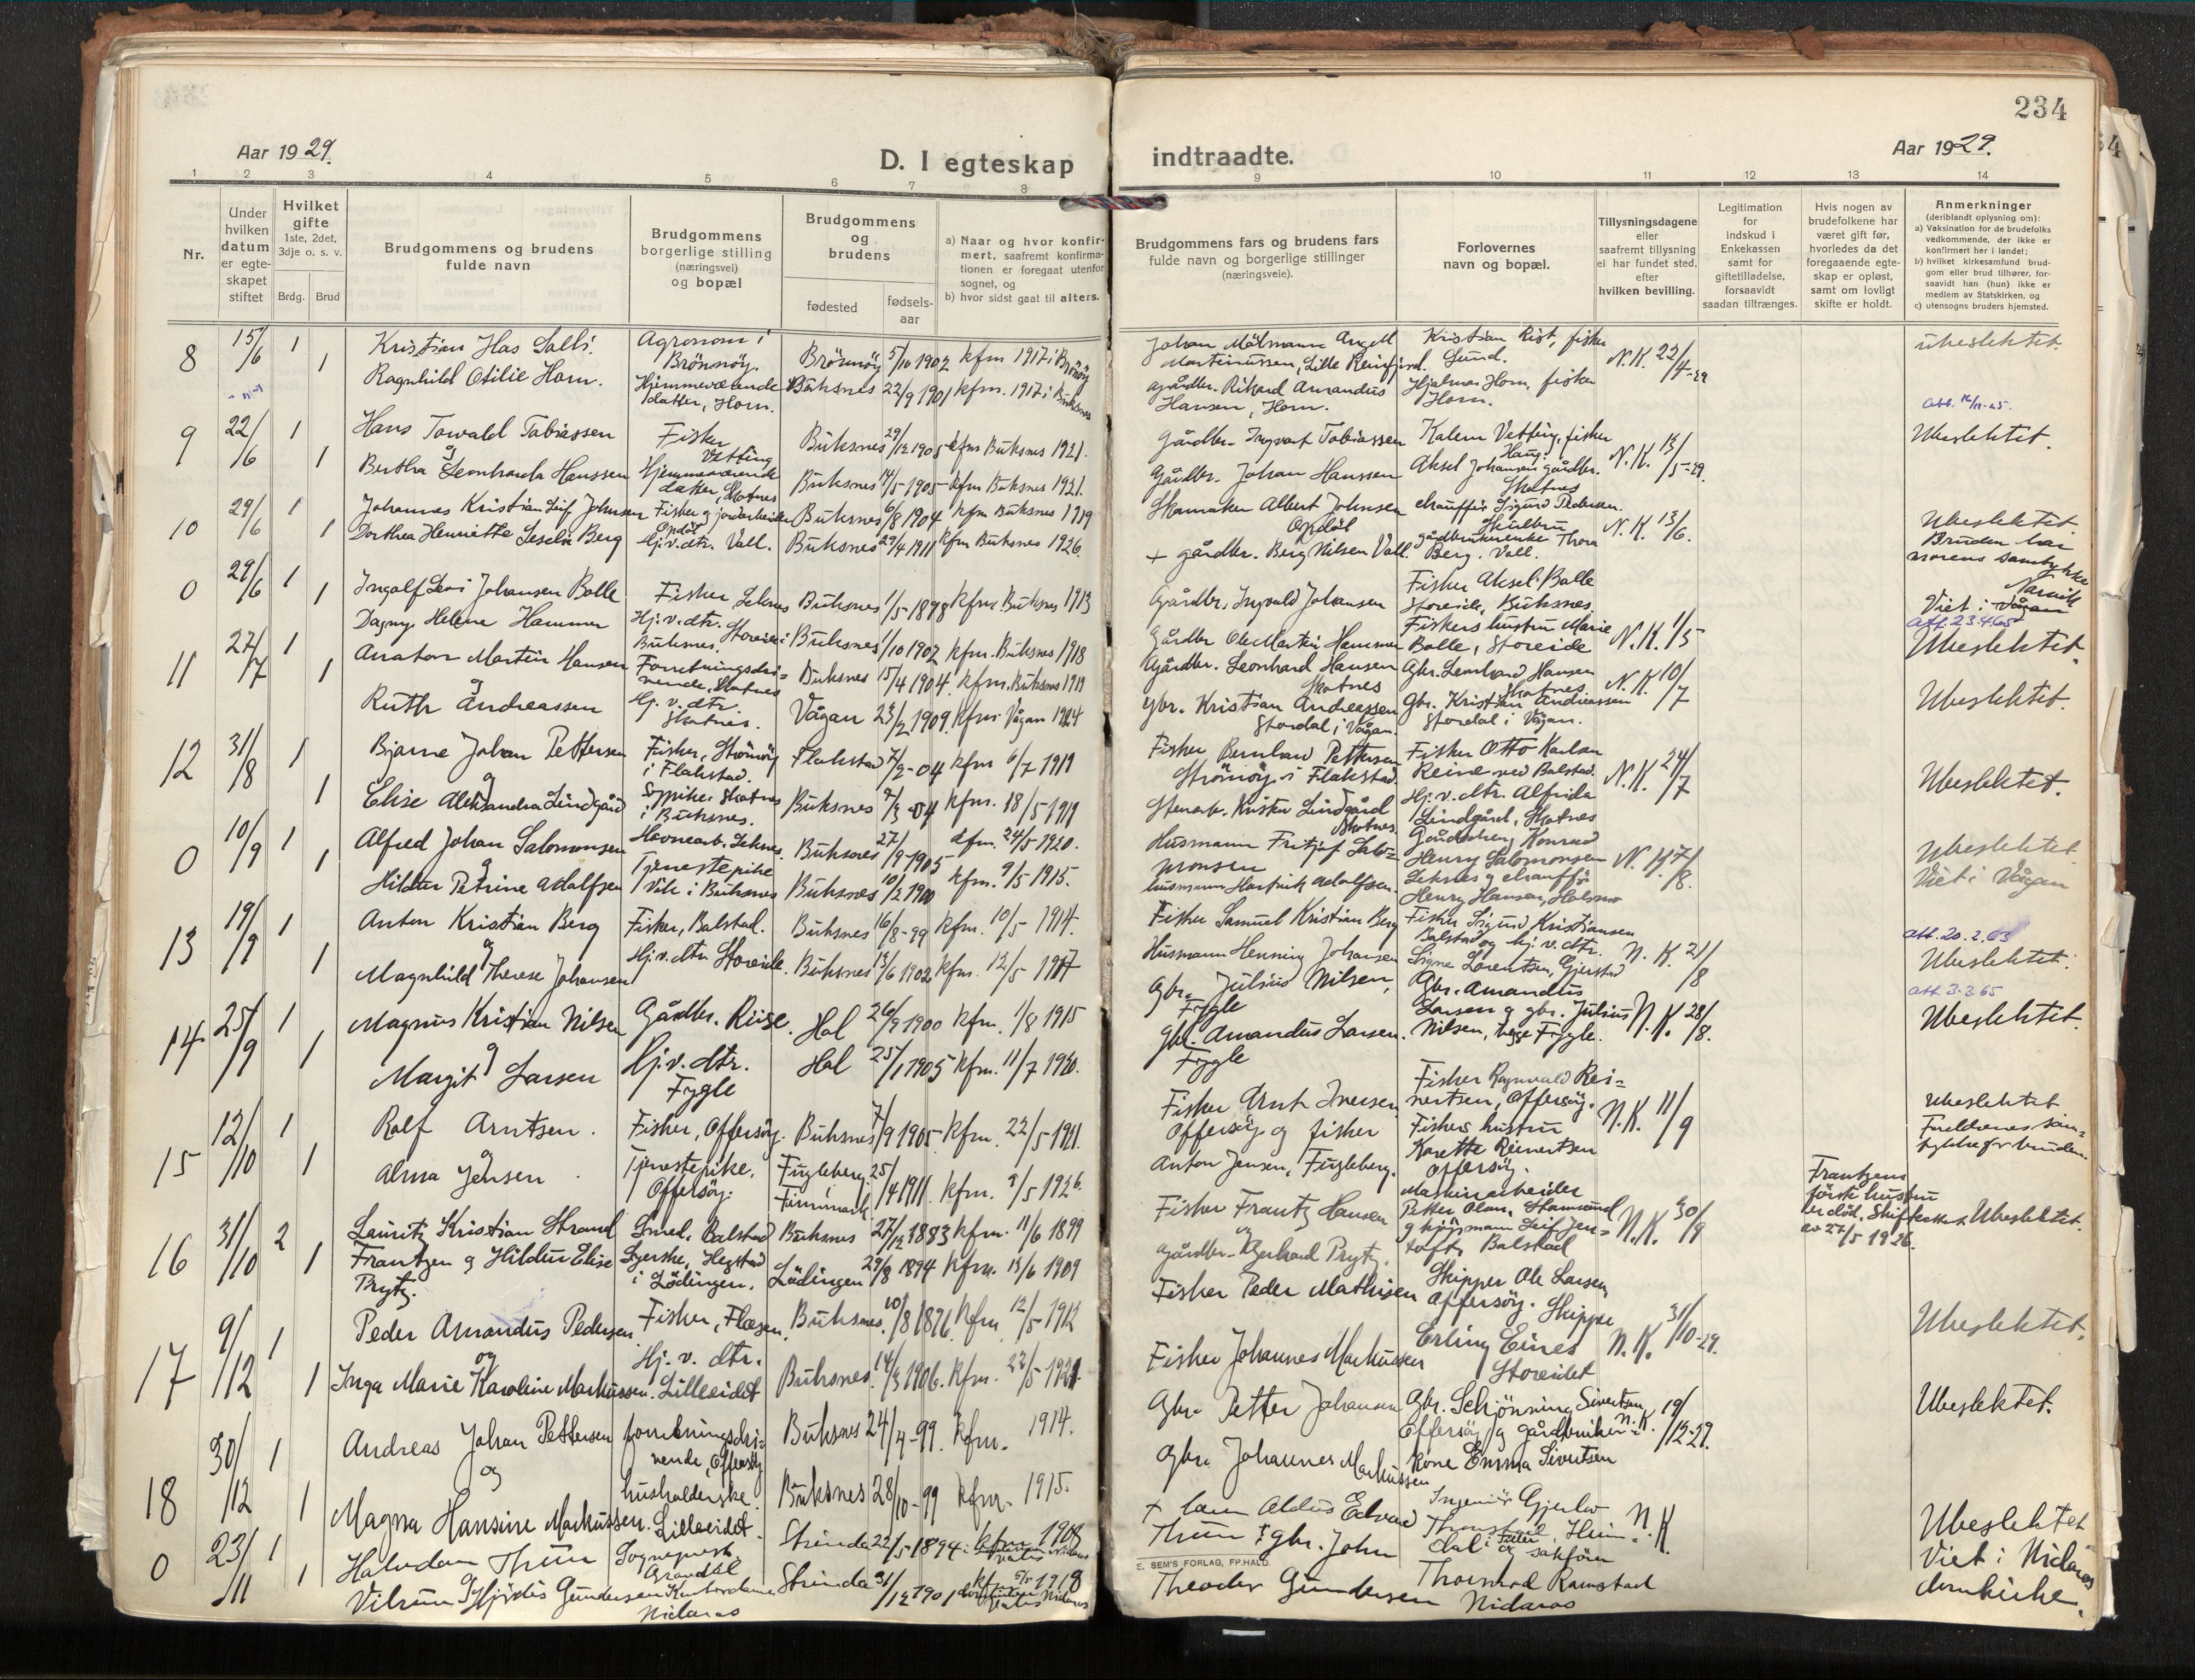 234
Aar 1929.
D. I egteskap
indtraadte.
Aar 1929.
1 2 3 4 5 6 7 8 9 10 11 12 13 14
Nr.
Under hvilken datum er egteskapet stiftet
Hvilket gifte 1ste, 2det, 3dje o. s. v.
Brdg. Brud
Brudgommens og brudens fulde navn
Brudgommens borgerlige stilling (næringsvei) og bopæl
Brudgommens og brudens
fødested
fødsels-aar
a) Naar og hvor konfirmert, saafremt konfirmationen er foregaat utenfor sognet, og
b) hvor sidst gaat til alters.
Brudgommens fars og brudens fars fulde navn og borgerlige stillinger (næringsveie).
Forlovernes navn og bopæl.
Tillysningsdagene eller saafremt tillysning ei har fundet sted, efter hvilken bevilling.
Legitimation for indskud i Enkekassen samt for giftetilladelse, forsaavidt saadan tiltrænges.
Hvis nogen av brudefolkene har været gift før, hvorledes da det foregaaende egteskap er opløst, samt om lovligt skifte er holdt.
Anmerkninger (deriblandt oplysning om):
a) Vaksination for de brudefolks vedkommende, der ikke er konfirmert her i landet;
b) hvilket kirkesamfund brudgom eller brud tilhører, forsaavidt han (hun) ikke er medlem av Statskirken, og
c) utensogns bruders hjemsted.
8 15/6 1 Kristian Has Salbi. Agronom i Brönnöy. Brönnöy 5/10 1902 kfm 1917 i Brönnöy
Johan Mölmann Angell Martinussen, Lille Reinfjord. Kristian Rist, fisker Sund. N.K. 22/4-29 Ubeslektet.
1 Ragnhild Otilie Horn. Hjemmeværende datter, Horn. Buksnes 22/9 1901 kfm. 1917 i Buksnes
gårdbr. Rikard Amandus Hansen, Horn. Hjalmar Horn, fisker Horn.
9 22/6 1 Hans Torvald Tobiassen Fisker Vetting Buksnes 29/12 1905 kfm Buksnes 1921.
Gårdbr. Ingvart Tobiassen Kalem Vetting, fisker Haug. N.K. 13/5-29. Ubeslektet.
og
1 Bertha Leonharda Hanssen Hjemmeværende datter, Skotnes Buksnes 14/5-1905 kfm Buksnes 1921.
Gårdbr. Johan Hanssen Aksel Johansen gårdbr. Skotnes
10 29/6 1 Johannes Kristian Leif Johnsen Fisker og jordarbeider Opdöl Buksnes 6/8 1904 kfm Buksnes 1919
Skomaker Albert Johnsen Opdöl chauffør Sigurd Pedersen. N.K. 13/6. Ubeslektet
1 Dorthea Henriette Leseli Berg Hj.v.dtr. Vall. Buksnes 29/4 1911 kfm Buksnes 1926
+ gårdbr. Berg Nilsen Vall. gårdbrukerenke Thora Berg. Vall. Bruden har morens samtykke
0 29/6 1 Ingolf Levi Johansen Bolle Fisker, Leknes Buksnes 1/5 1898 kfm. Buksnes 1913
Gårdbr. Ingvald Johansen Fisker Aksel Balle Storeide, Buksnes. Viet i Vågan
1 Dagny Helene Hammer Hj.v.dtr. Storeide i Buksnes. Buksnes 1/10 1902 kfm. Buksnes 1918
Gårdbr Ole Martin Hammer Fiskers hustru Marie Balle, Storeide N.K. 1/5 att. 23.4.65 Ubeslektet.
11 27/7 1 Anaton Martin Hansen Forretningsdrivende, Skotnes Buksnes 15/4 1904. kfm. Buksnes 1919
Gårdbr. Leonhard Hansen Skotnes Gbr. Leonhard Hansen Skotnes N.K. 10/7
og
1 Ruth Andreassen Hj. v. dtr. Skotnes. Vågan 23/2 1909. kfm i Vågan 1924
Gbr. Kristian Andreassen Stordal i Vågan. Gbr. Kristian Andreassen Stordal i Vågan. Ubeslektet.
12 31/8 1 Bjarne Johan Pettersen Fisker, Strömöy i Flakstad. Flakstad 7/2-04 kfm 6/7 1919
Fisker Bernhard Pettersen Strömöy i Flakstad. Fisker Otto Karlsen Reine ved Balstad. N.K. 24/7 Ubeslektet.
og
1 Elise Aleksandra Lindgård Sypike, Skotnes i Buksnes. Buksnes 9/3-04 kfm. 18/5 1919
Stenarb. Krister Lindgård Skotnes. Hj. v. dtr. Alfrida Lindgård, Skotnes
0 10/9 1 Alfred Johan Salomonsen Havnearb. Leknes. Buksnes 27/9-1905 kfm. 24/5-1920.
Husmann Fritjof Salomonsen Gårdbr. Konrad Henry Salomonsen Leknes og chauffør Henry Hansen, N.K. 7/8. Ubeslektet. Viet i Vågan
og
1 Hildur Petrine Adolfsen Tjenestepike Vik i Buksnes Buksnes 10/2 1900 kfm. 9/5 1915.
husmann Hartvik Adolfsen.
13 19/9 1 Anton Kristian Berg Fisker, Balstad. Buksnes 16/8-99 kfm. 10/5-1914.
Fisker Samuel Kristian Berg Fisker Sigurd Kristiansen Balstad og hj. v. dtr. Signe Lorentsen, Gjerstad N.K. 21/8 att. 20.2.63 Ubeslektet.
og
1 Magnhild Therese Johansen Hj.v.dtr. Storeide. Buksnes 13/6 1902 kfm. 12/5 1917
Husmann Henning Johansen
14 25/9 1 Magnus Kristian Nilsen Gårdbr. Riise. Hol 26/9 1900 kfm. 1/8 1915
Gbr. Julius Nilsen, Fygle Gbr. Amandus Larsen og gbr. Julius Nilsen, begge Fygle. N.K. 28/8. att. 3.3.65 Ubeslektet.
og
1 Margit Larsen Hj.v. dtr. Fygle Hol 25/1 1905 kfm. 11/7 1920.
Gbr. Amandus Larsen. Fygle
15 12/10 1 Rolf Arntsen. Fisker, Offersöy. Buksnes 7/9 1905. kfm. 22/5-1921.
Fisker Arnt Iversen Offersöy og fisker Fisker Ragnvald Reinertsen, Offersöy. N.K. 11/9 Ubeslektet
og
1 Alma Jensen Tjenestepike, Offersöy. Fugleberg Finnmark 25/4 1911. kfm. 9/5 1926.
Anton Jensen, Fugleberg. Fiskers hustru Karette Reinertsen Offersöy. Foreldrenes samtykke for bruden.
16 31/10 2 Lauritz Kristian Strand Frantzen Smed, Balstad Buksnes 27/12 1883 kfm. 11/6 1899
Fisker Frantz Hansen og Maskinarbeider Petter Olsen, Stamsund N.K. 30/9 Frantzens første hustru er død, Skifteattest av 27/5 1926. Ubeslektet.
1 og Hildur Elise Prytz. Syerske, Hegstad i Lödingen. Lödingen 29/8 1894 kfm. 13/6 1909
gårdbr. Gerhard Prytz. Balstad
17 9/12 1 Peder Amandus Pedersen Fisker, Flæsen. Buksnes. 10/8 1896. kfm 12/5-1912
Fisker Peder Mathisen Skipper Ole Larsen, Offersöy. Skipper Erling Eines Storeidet N.K. 31/10-29. Ubeslektet.
og
1 Inga Marie Karoline Markussen. Hj. v. dtr. Lilleeidet Buksnes. 14/3 1906. kfm. 22/5-1921
Fisker Johannes Markussen
18 30/12 1 Andreas Johan Pettersen forretningsdrivende, Offersöy Buksnes 24/4-99. kfm. 1914.
Gbr. Petter Johansen Gbr. Schjönning Sivertsen Offersöy og gårdbruker-kone Emma Sivertsen N.K. 19/12-29. Ubeslektet.
og
1 Magna Hansine Markussen. husholderske. Lilleeidet. Buksnes 28/10-99 kfm. 1915.
Gbr. Johannes Markussen
0 23/11 1 Halvdan Thun Sogneprest, Strinda 22/5-1894. kfm 1908 Nidaros
+ Aldus Edvard Thun Ingeniör Gjerlöv N.K. Ubeslektet
og
1 Vilrun Hjördis Gundersen Kontordame Nidaros Strinda 31/12 1901 kfm 1918 Nidaros
gbr. John Theodor Gundersen og sakförer Thorvald Ramstad Nidaros Viet i Nidaros domkirke.
E. SEM'S FORLAG, FR.HALD